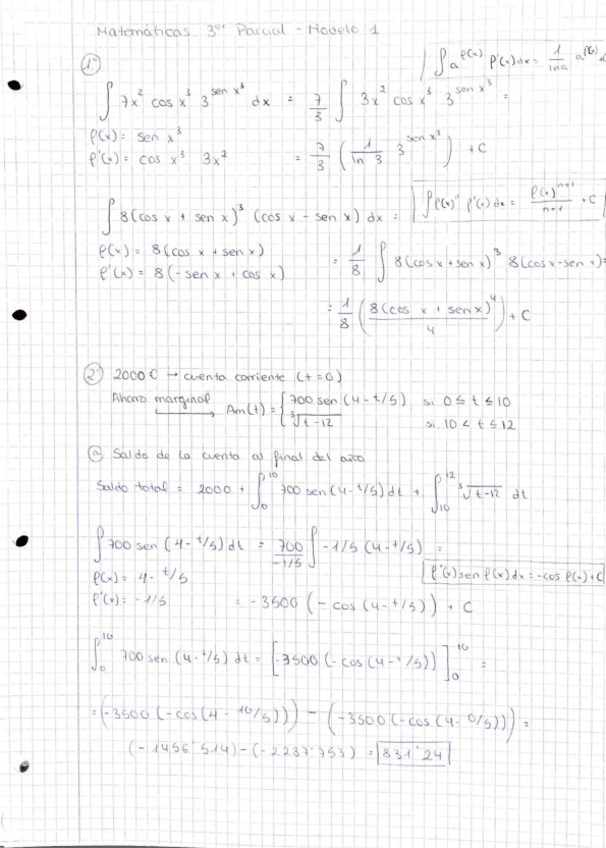 Matemáticas 3er Parcial - Modelo 1
∫ a^f(x) f'(x) dx = 1/ln a a^f(x) + C
1º
∫ 7x² cos x³ 3^(sen x³) dx = 7/3 ∫ 3x² cos x³ 3^(sen x³) =
f(x) = sen x³
f'(x) = cos x³ 3x² = 7/3 (1/ln 3 3^(sen x³)) + C
∫ 8(cos x + sen x)³ (cos x - sen x) dx = ∫ f(x)^n f'(x) dx = f(x)^(n+1)/(n+1) + C
f(x) = 8(cos x + sen x) = 1/8 ∫ 8(cos x + sen x)³ 8(cos x - sen x) =
f'(x) = 8(-sen x + cos x)
= 1/8 (8(cos x + sen x)⁴/4) + C
2º 2000€ → cuenta corriente (t=0)
Ahorro marginal → Am(t) = { 700 sen (4 - t/5) si 0 ≤ t ≤ 10
³√(t-12) si 10 < t ≤ 12
a) Saldo de la cuenta al final del año
Saldo total = 2000 + ∫₀¹⁰ 700 sen (4 - t/5) dt + ∫₁₀¹² ³√(t-12) dt
∫ 700 sen (4 - t/5) dt = 700/(-1/5) ∫ -1/5 (4 - t/5) =
f(x) = 4 - t/5 f'(x) sen f(x) dx = -cos f(x) + C
f'(x) = -1/5 = -3500 (-cos (4 - t/5)) + C
∫₀¹⁰ 700 sen (4 - t/5) dt = [-3500 (-cos (4 - t/5))]₀¹⁰ =
= (-3500 (-cos (4 - 10/5))) - (-3500 (-cos (4 - 0/5))) =
(-1456'514) - (-2287'753) = 831'24